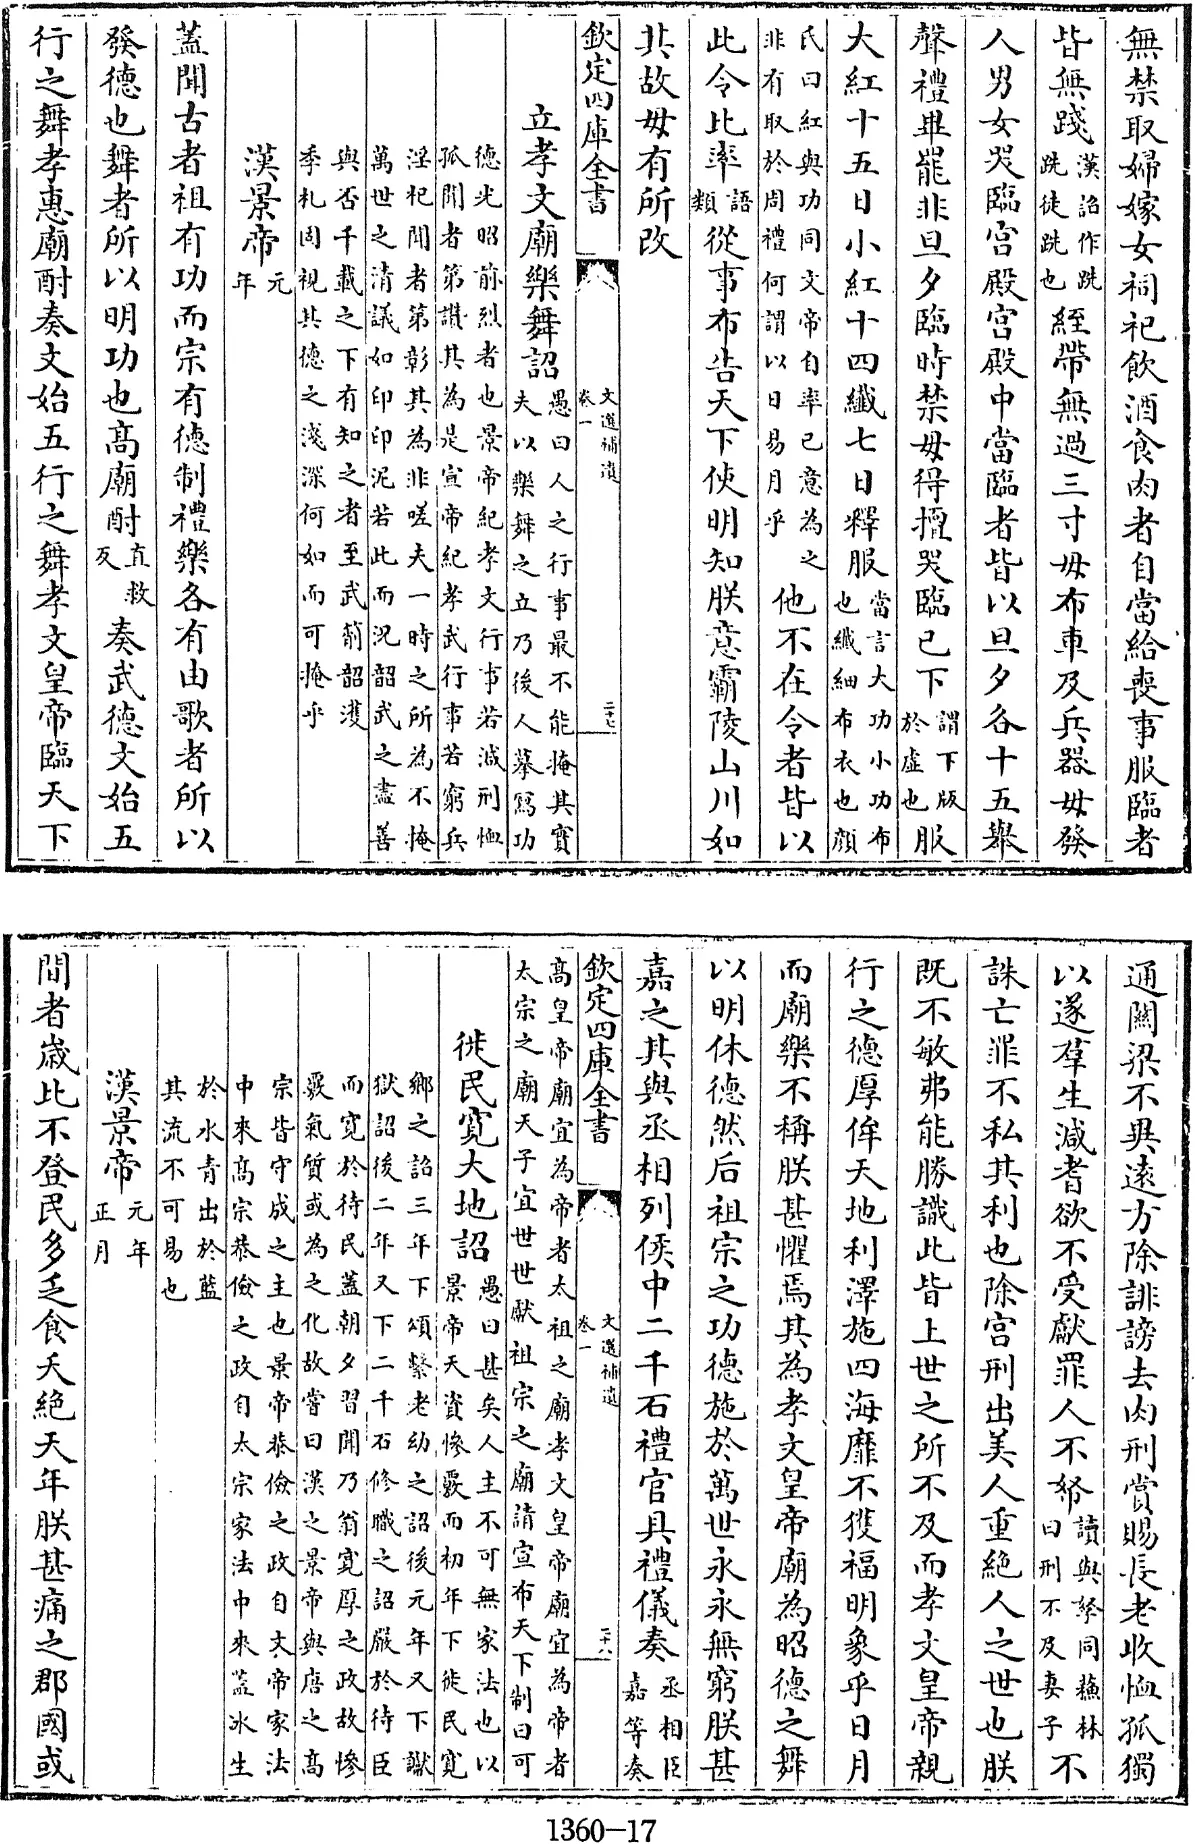 無禁取婦嫁女祠祀飲酒食肉者自當給喪事服臨者
皆無踐漢詔作跣跣徒跣也絰帶無過三寸毋布車及兵器毋發
人男女哭臨宫殿宫殿中當臨者皆以旦夕各十五舉
聲禮畢罷非旦夕臨時禁毋得擅哭臨已下謂下版於虚也服
大紅十五日小紅十四纖七日釋服當言大功小功布也纖細布衣也顔
氏曰紅與功同文帝自率已意為之非有取於周禮何謂以日易月乎他不在令者皆以
此令比率語類從事布告天下使明知朕意霸陵山川如
其故毋有所改
欽定四庫全書 文選補遺 卷一 二十七
立孝文廟樂舞詔愚曰人之行事最不能掩其實夫以樂舞之立乃後人摹寫功
德光昭前烈者也景帝紀孝文行事若減刑恤
孤聞者第讃其為是宣帝紀孝武行事若窮兵
淫祀聞者第彰其為非嗟夫一時之所為不掩
萬世之清議如印印泥若此而况韶武之盡善
與否千載之下有知之者至武箾韶濩
季札固視其德之淺深何如而可掩乎
漢景帝元年
蓋聞古者祖有功而宗有德制禮樂各有由歌者所以
發德也舞者所以明功也髙廟酎直救反奏武德文始五
行之舞孝惠廟酎奏文始五行之舞孝文皇帝臨天下
通關梁不異逺方除誹謗去肉刑賞賜長老收恤孤獨
以遂羣生減耆欲不受獻罪人不帑讀與孥同蘇林曰刑不及妻子不
誅亡罪不私其利也除宫刑出美人重絶人之世也朕
既不敏弗能勝識此皆上世之所不及而孝文皇帝親
行之德厚侔天地利澤施四海靡不獲福明象乎日月
而廟樂不稱朕甚懼焉其為孝文皇帝廟為昭德之舞
以明休德然后祖宗之功德施於萬世永永無窮朕甚
嘉之其與丞相列侯中二千石禮官具禮儀奏丞相臣嘉等奏
欽定四庫全書 文選補遺 卷一 二十八
髙皇帝廟宜為帝者太祖之廟孝文皇帝廟宜為帝者
太宗之廟天子宜世世獻祖宗之廟請宣布天下制曰可
徙民寛大地詔愚曰甚矣人主不可無家法也以景帝天資慘覈而初年下徙民寛
鄉之詔三年下頌繫老幼之詔後元年又下讞
獄詔後二年又下二千石修職之詔嚴於待臣
而寛於待民蓋朝夕習聞乃翁寛厚之政故慘
覈氣質或為之化故嘗曰漢之景帝與唐之髙
宗皆守成之主也景帝恭儉之政自文帝家法
中來髙宗恭儉之政自太宗家法中來蓋冰生
於水青出於藍
其流不可易也
漢景帝元年正月
間者歳比不登民多乏食夭絶天年朕甚痛之郡國或
1360-17